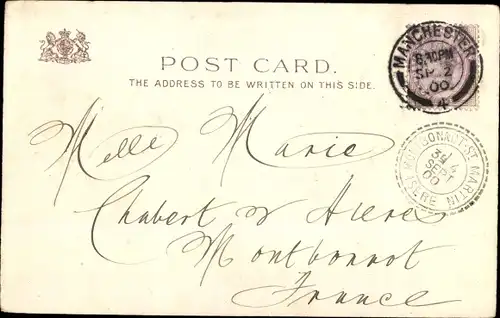 POST CARD.
THE ADDRESS TO BE WRITTEN ON THIS SIDE.
MANCHESTER
6.30PM
SP 2
00
4
MONTBONNOT-ST MARTIN
3E
4
SEPT
00
ISERE
Melle Marie
Chabert d'Hieres
Montbonnot
France